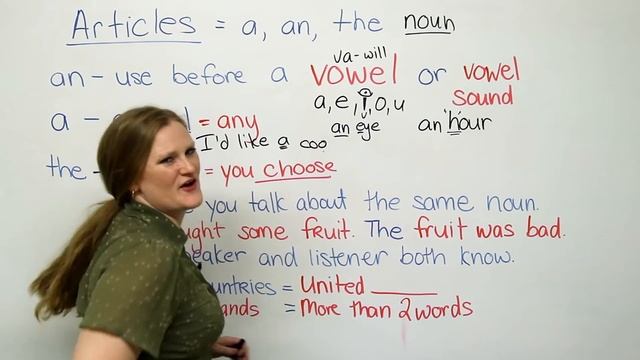 Articles = a, an, the noun
va-will
an - use before a vowel or vowel sound
a, e, i, o, u
an eye an hour
a - = any
I'd like a coo
the - = you choose
you talk about the same noun.
some fruit. The fruit was bad.
and listener both know.
= United ______
= More than 2 words